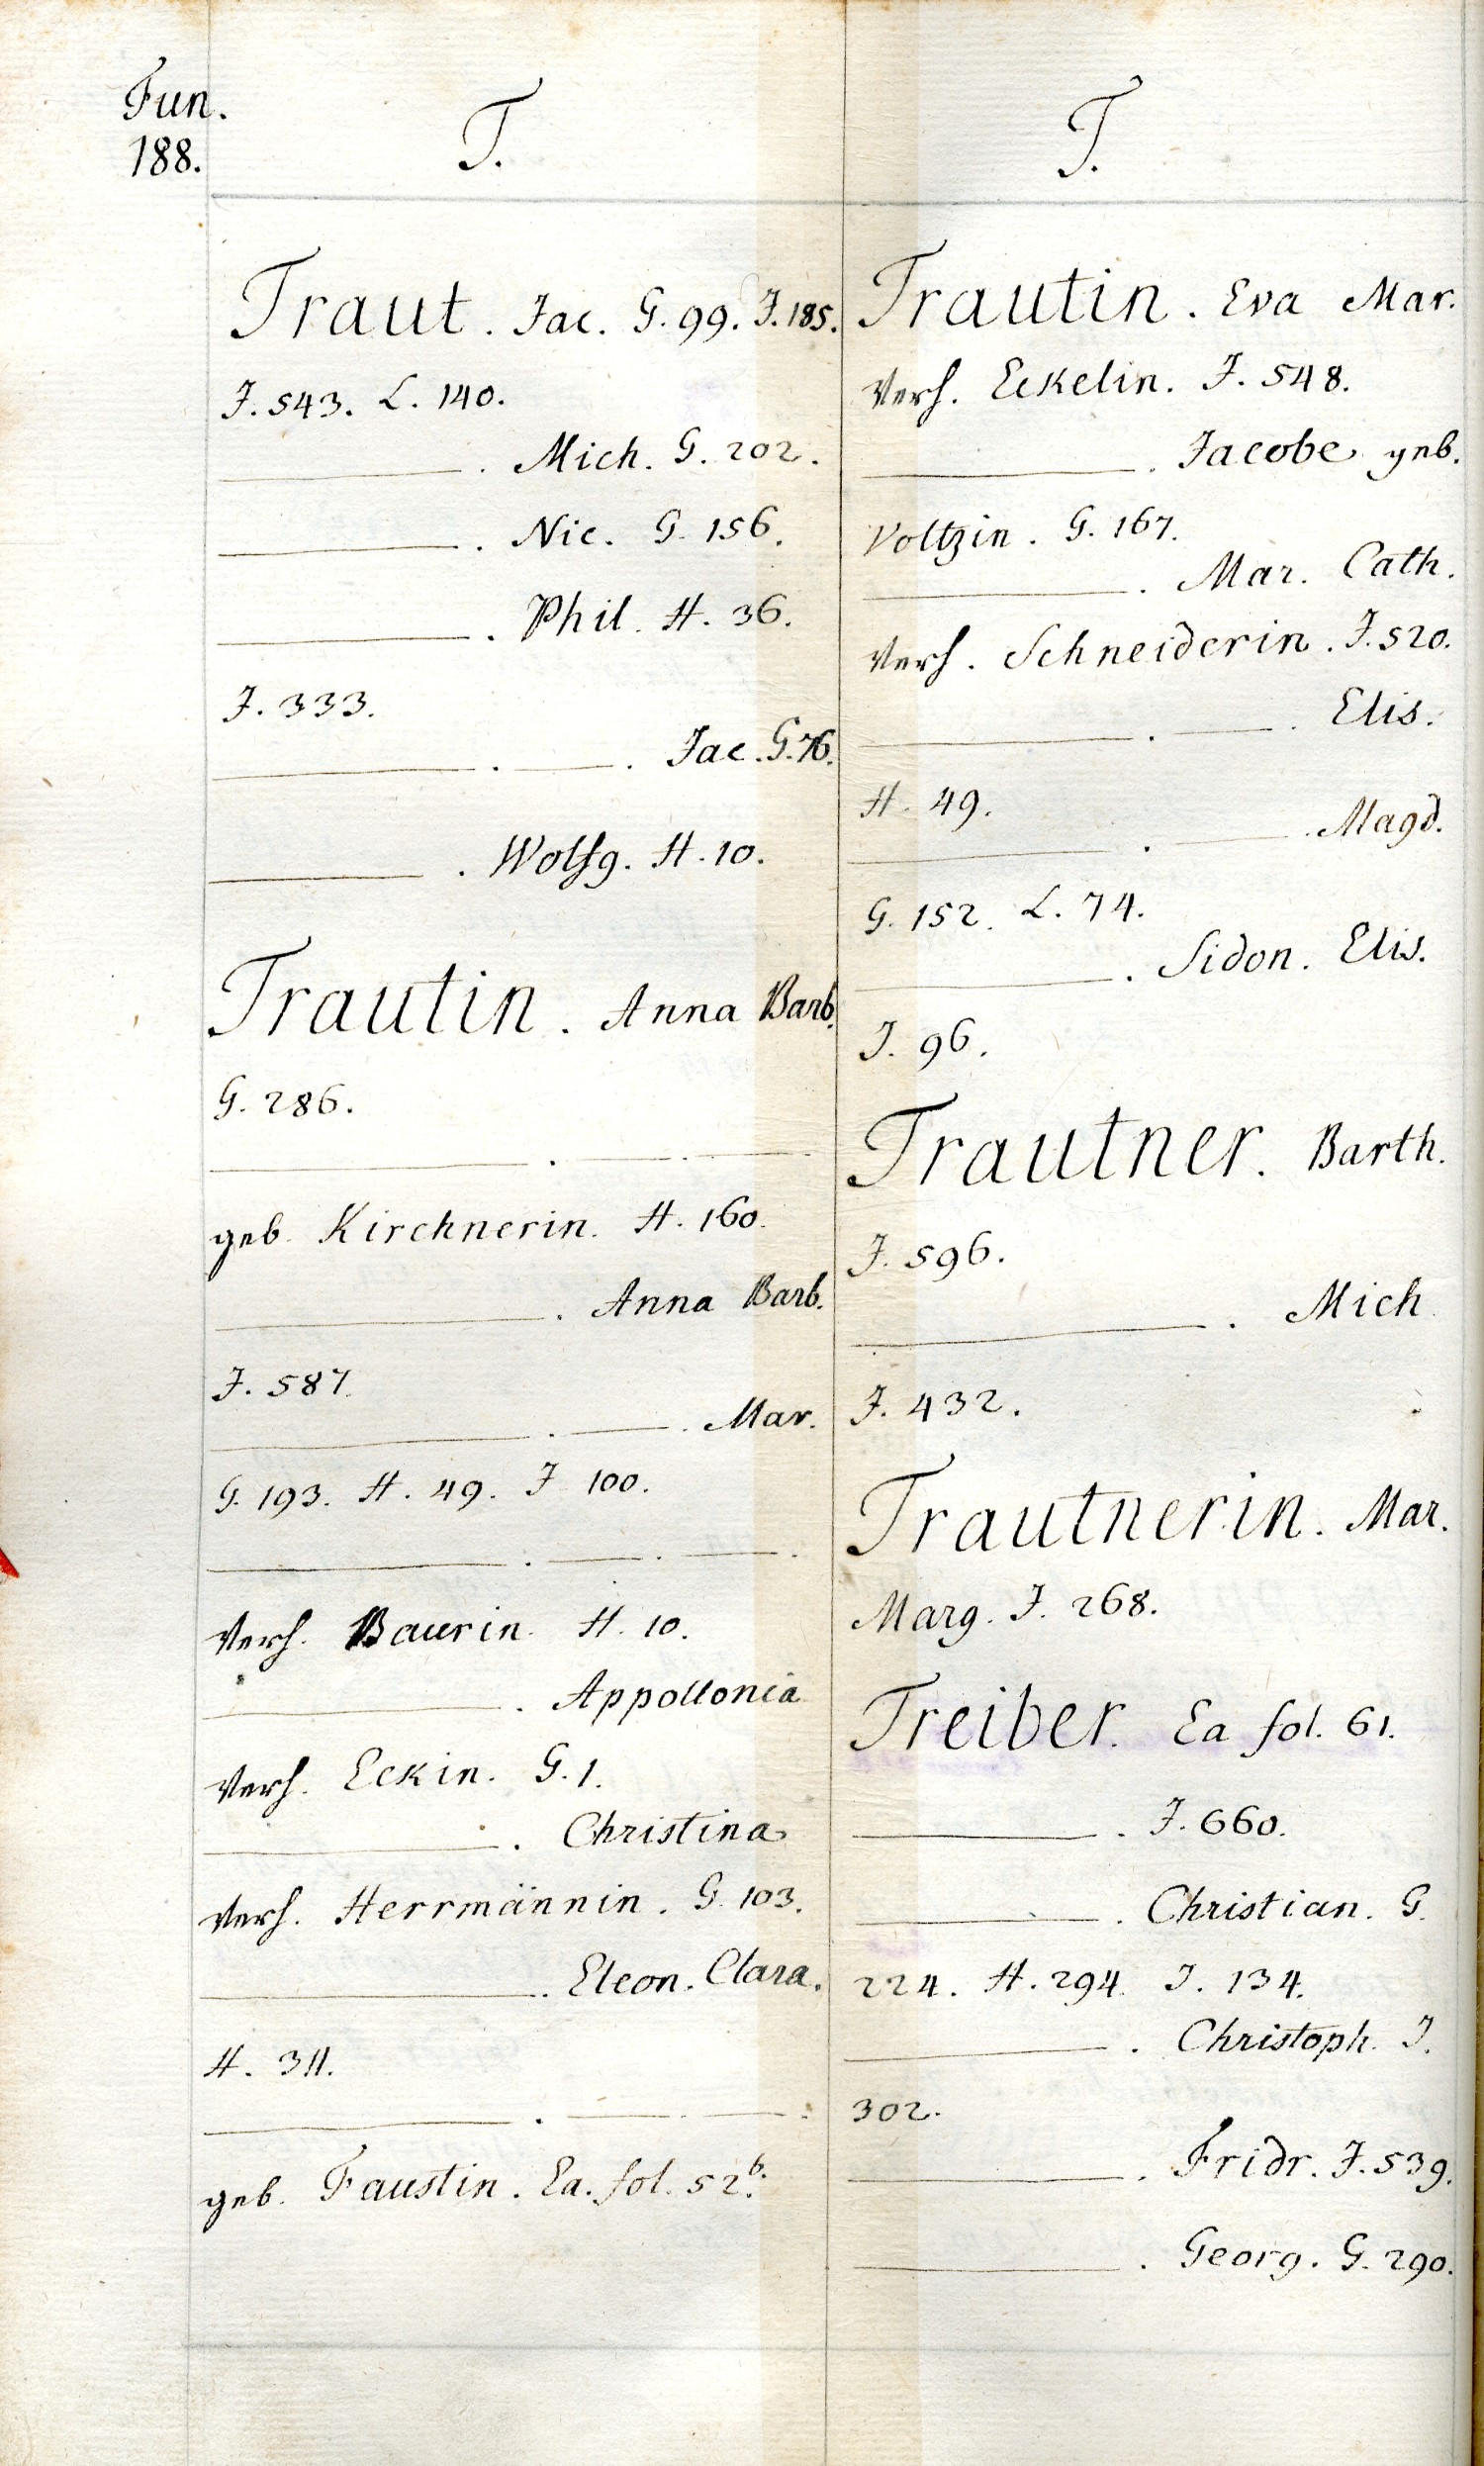 Fun.
188.
T.
Traut. Jac. G. 99. J. 185.
J. 543. L. 140.
———. Mich. G. 202.
———. Nic. G. 156.
———. Phil. H. 36.
J. 333.
———. ——. Jac. G. 76.
———. Wolfg. H. 10.
Trautin. Anna Barb.
G. 286.
———. ——. ——
geb. Kirchnerin. H. 160.
———. Anna Barb.
J. 587.
———. ——. Mar.
G. 193. H. 49. J 100.
———. ——. ——.
verh. Baurin. H. 10.
———. Appollonia
verh. Eckin. G. 1.
———. Christina
verh. Herrmännin. G. 103.
———. Eleon. Clara.
H. 311.
———. ——. ——.
geb. Faustin. Ea. fol. 52.b.
T.
Trautin. Eva Mar.
verh. Eckelin. J. 548.
———. Jacobe geb.
Voltzin. G. 167.
———. Mar. Cath.
verh. Schneiderin. J. 520.
———. ——. Elis.
H. 49.
———. ——. Magd.
G. 152. L. 74.
———. Sidon. Elis.
J. 96.
Trautner. Barth.
J. 596.
———. Mich
J. 432.
Trautnerin. Mar.
Marg. J. 268.
Treiber. Ea fol. 61.
———. J. 660.
———. Christian. G.
224. H. 294. J. 134.
———. Christoph. J.
302.
———. Fridr. J. 539.
———. Georg. G. 290.